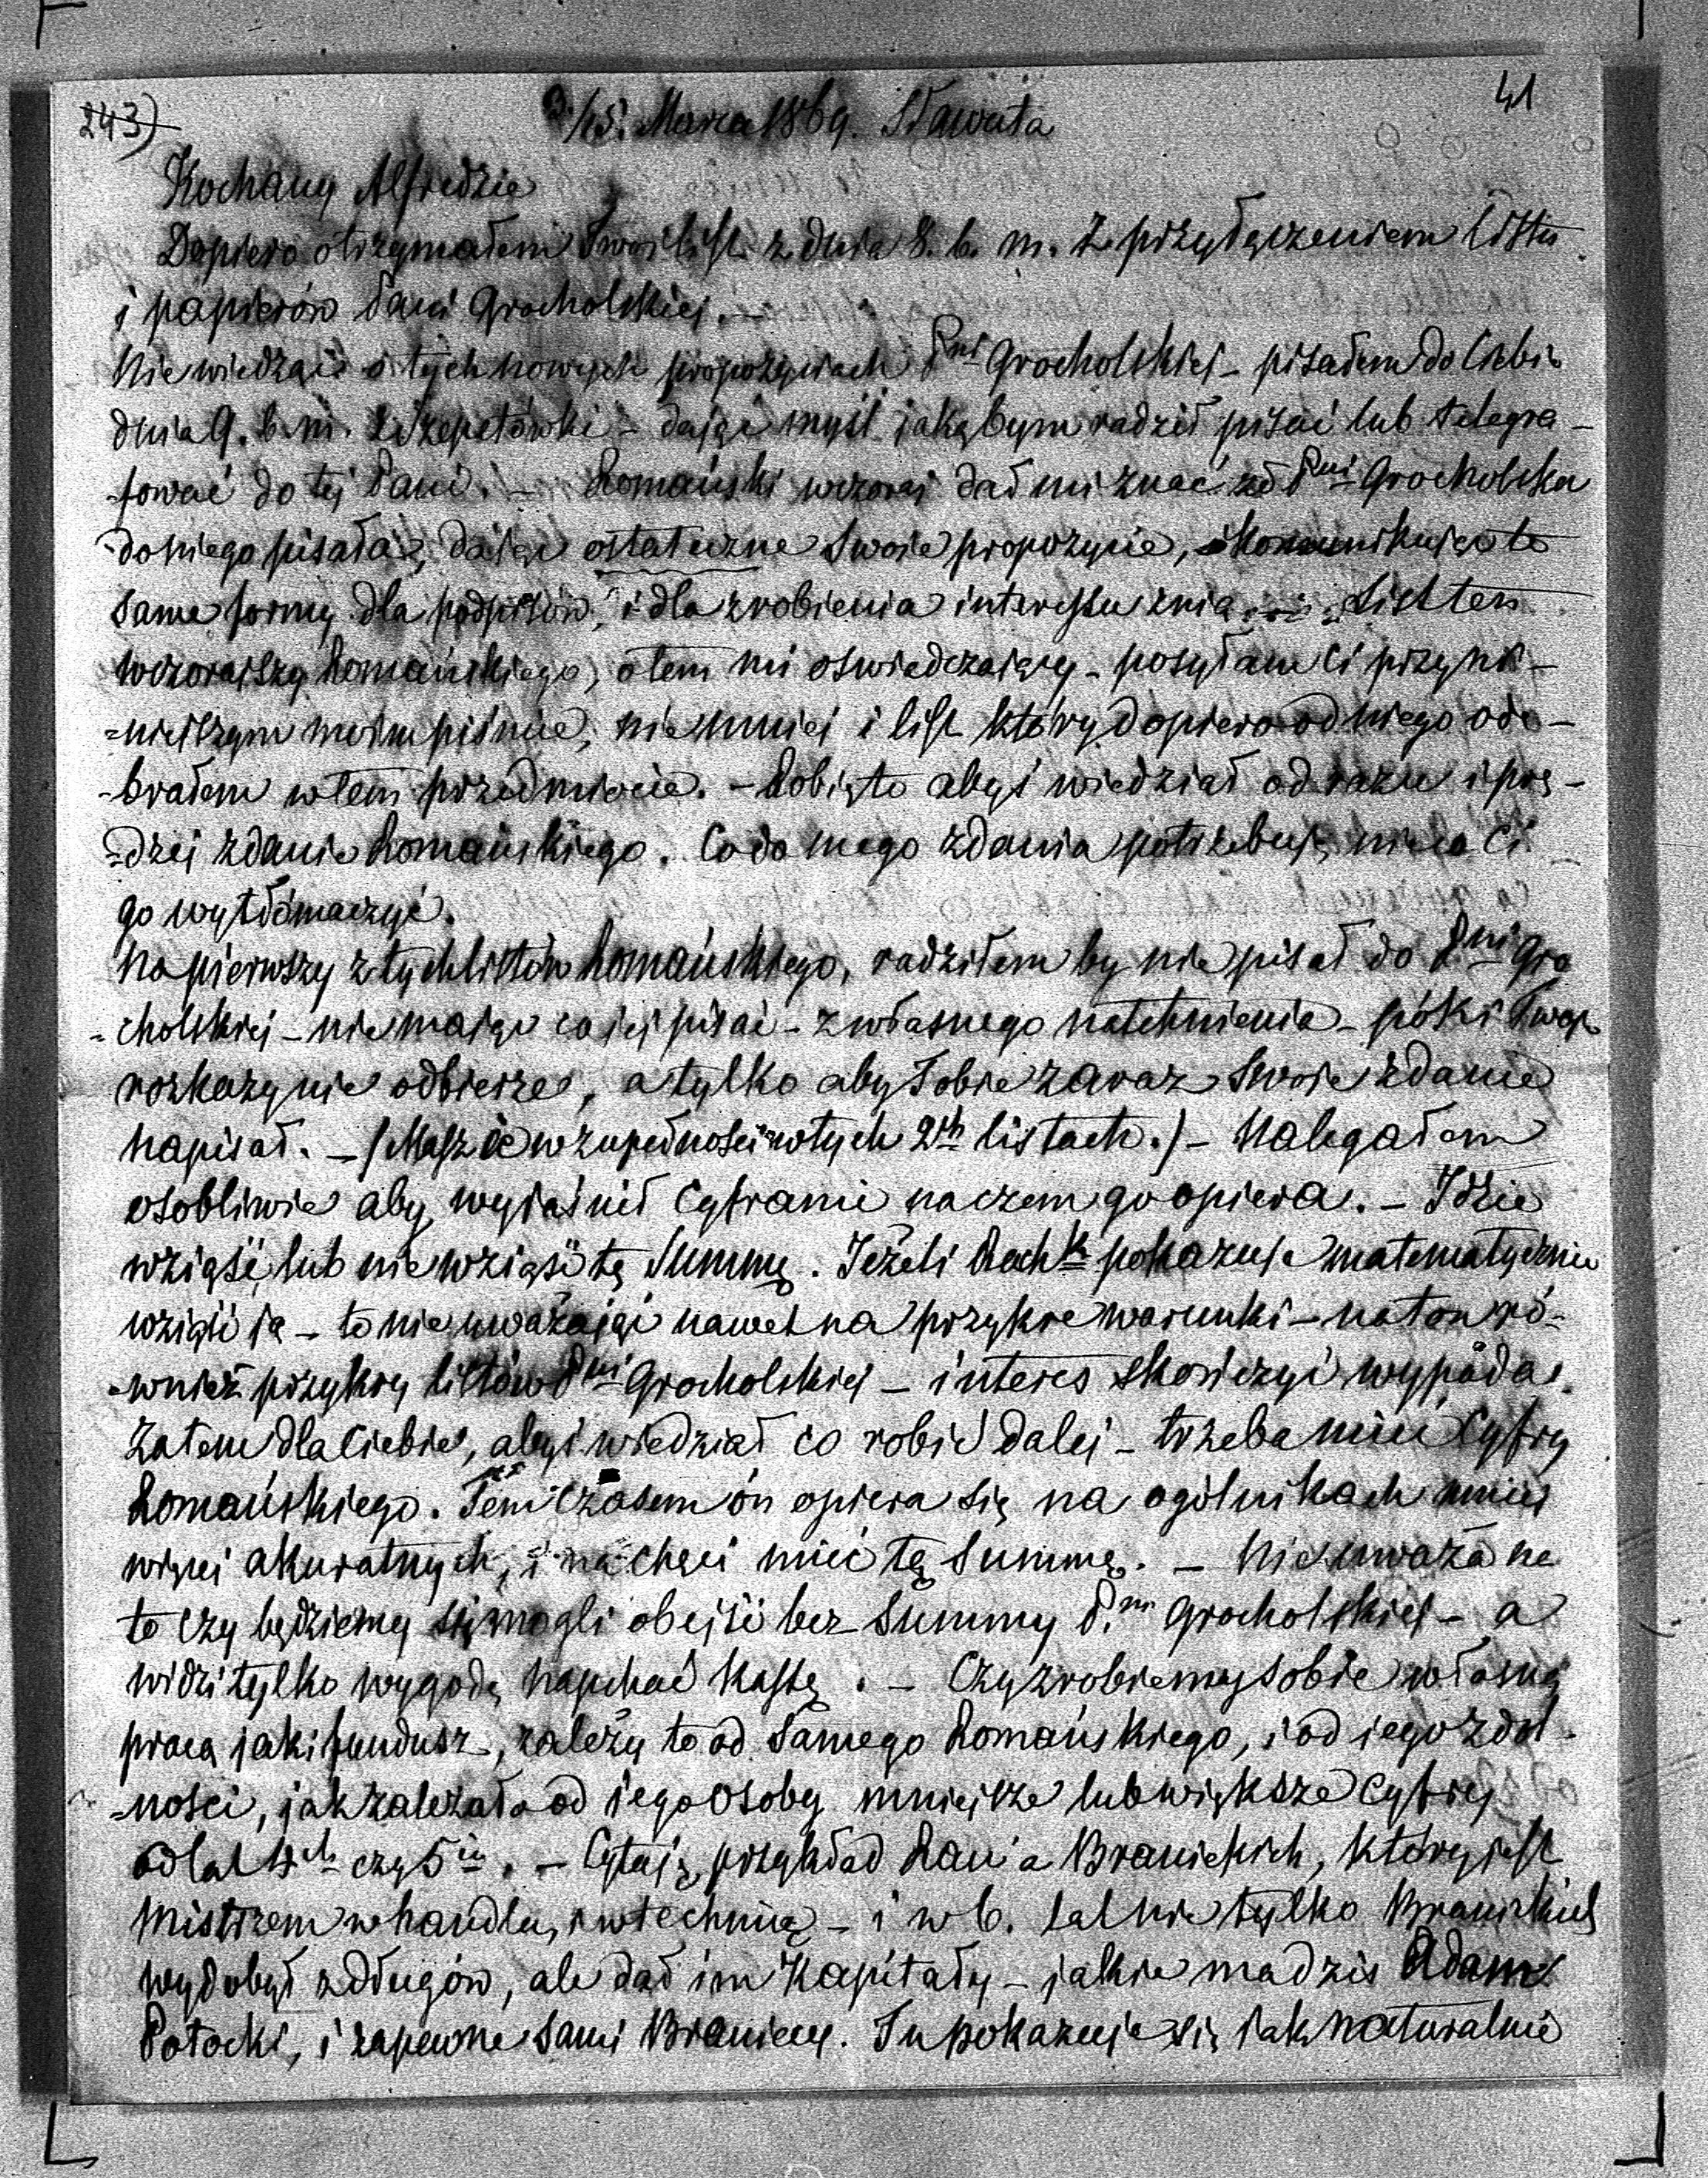 243) 41
3/15. Marca 1869. Sławuta
Kochany Alfredzie
Dopiero otrzymałem Twój list z dnia 8. b. m. z przyłączeniem listu
i papierów Pani Grocholskiej. —
Nie wiedząc o tych nowych propozyciach Pni Grocholskiej – pisałem do Ciebie
dnia 9. b. m. z Szepetówki – dając myśl jakąbym radził pisać lub telegra-
-fować do tej Pani. – Romański wczoraj dał mi znać że Pni Grocholska
do niego pisała, dając ostateczne swoie propozycie, i komunikując te
same formy dla podpisów, i dla zrobienia interessu z nią. List ten
wczorajszy Romańskiego, o tem mi oświadczaiący – posyłam Ci przy ni-
-niejszym moim piśmie, nie mniej i list który dopiero od niego ode-
-brałem w tem przedmiocie. – Robię to abyś wiedział od razu i prę-
-dzej zdanie Romańskiego. Co do mego zdania potrzebuję nieco Ci
go wytłómaczyć.
Na pierwszy z tych listów Romańskiego, radziłem by nie pisał do Pni Gro
-cholskiej – nie maiąc co jej pisać – z własnego natchnienia – póki Twoje
rozkazy nie odbierze, a tylko aby Tobie zaraz swoie zdanie
napisał. – (Masz ie w zupełności w tych 2ch listach.) – Nalegałem
osobliwie aby wyiaśnił cyframi na czem go opiera. – Idzie
wziąść lub nie wziąść tę Summę. Jeżeli Rachk pokazuje matematycznie
wziąść ją – to nie uważając nawet na przykre warunki – na ton ró-
-wnież przykry listów Pni Grocholskiej – interes skończyć wypada.
Zatem dla Ciebie, abyś wiedział co robić dalej – trzeba mieć Cyfry
Romańskiego. Tem czasem ón opiera się na ogólnikach mniej
więcej akuratnych, i na chęci mieć tę Summę. – Nie uważa na
to czy będziemy się mogli obejść bez Summy P.ni Grocholskiej – a
widzi tylko wygodę napchać Kassę. – Czy zrobiemy sobie własną
pracą jaki fundusz, zależy to od samego Romańskiego, i od jego zdol-
-ności, jak zależało od jego osoby mniejsze lub większe Cyfry
od lat 4ch czy 5iu. – Cytuję przykład Rau'a Branickich, który jest
Mistrzem w handlu, i w technią – i w 6. lat nie tylko Branickich
wydobył z długów, ale dał im Kapitały – jakie ma dziś Adam
Potocki, i zapewne sami Braniccy. Tu pokazuje się jak naturalnie